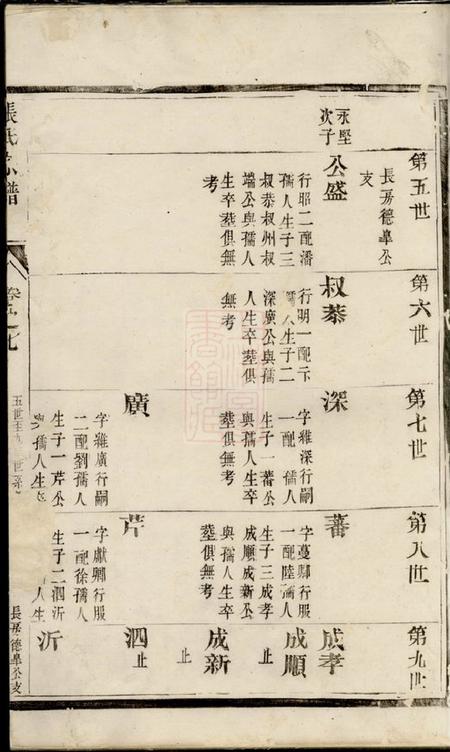 第五世
長房德臯公
支
永堅
次子
公盛
行昭二配潘
孺人生子三
叔恭叔州叔
端公與孺人
生卒塟俱無
考
第六世
叔恭
行明一配卞
孺人生子二
深廣公與孺
人生卒塟俱
無考
第七世
深
字維深行嗣
一配孺人
生子一蕃公
與孺人生卒
塟俱無考
廣
字維廣行嗣
二配劉孺人
生子一芹公
與孺人生
第八世
蕃
字蔓卿行服
一配陸孺人
生子三成孝
成順成新公
與孺人生卒
塟俱無考
芹
字獻卿行服
一配徐孺人
生子二泗沂
人生
第九世
成孝
成順
止
成新
止
泗
止
沂
張氏宗譜
卷
五世至
長房德臯公支